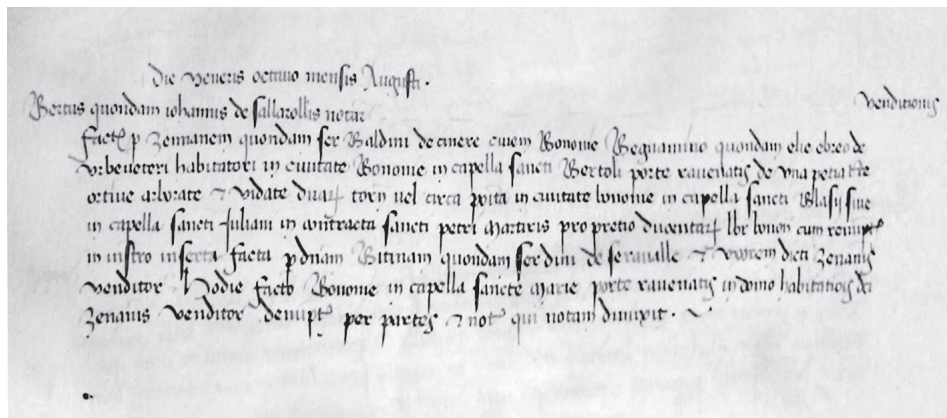 Die veneris octavo mensis Augusti.
Bertus quondam iohannis de sallarollis notar
venditionis
fact p zennanem quondam ser Baldini de cinere civem Bononie Beguamino quondam elie ebreo de
urbeveteri habitatori in civitate Bononie in capella sancti Bertoli porte ravenatis de una petia tre
ortive arborate et vidate duar torn vel circa poita in civitate bononie in capella sancti Blasii sive
in capella sancti Juliani in contracta sancti petri martiris pro pretio ducentar lbr bonon cum
in instro inserta facta p dnam Bitinam quondam ser dini de seravalle et uxorem dicti zenanis
venditor hodie facto Bononie in capella sancte marie porte ravenatis in domo habitationis dci
zenanis venditor denupt per partes et not qui notam dimixit.